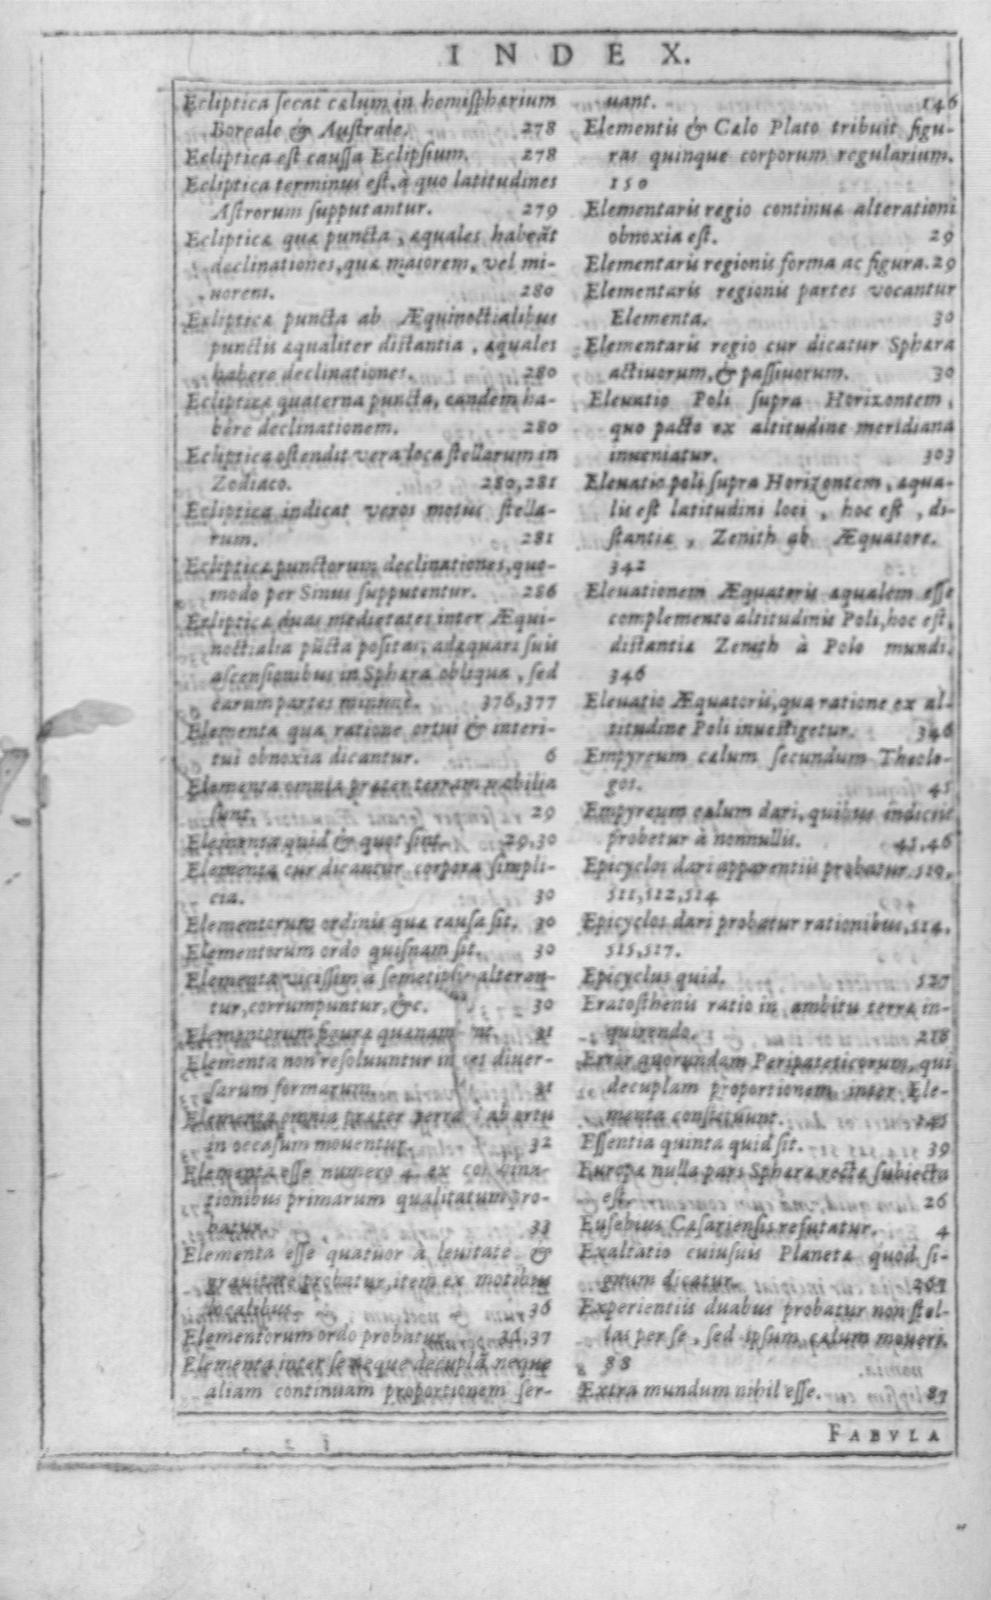 INDEX.
Ecliptica secat cælum in hemisphærium
Boreale & Australe. 278
Ecliptica est caussa Eclipsium. 278
Ecliptica terminus est, à quo latitudines
Astrorum supputantur. 279
Eclipticæ quæ puncta, æquales habeãt
declinationes, quæ maiorem, vel mi-
norem. 280
Eclipticæ puncta ab Æquinoctialibus
punctis æqualiter distantia, æquales
habere declinationes. 280
Eclipticæ quaterna puncta, eandem ha-
bere declinationem. 280
Ecliptica ostendit vera loca stellarum in
Zodiaco. 280,281
Ecliptica indicat veros motus stella-
rum. 281
Eclipticæ punctorum declinationes, quo-
modo per Sinus supputentur. 286
Eclipticæ duas medietates inter Æqui-
noctialia pũcta positas, adæquari suis
ascensionibus in Sphæra obliqua, sed
earum partes minime. 376,377
Elementa qua ratione ortui & interi-
tui obnoxia dicantur. 6
Elementa omnia præter terram mobilia
sunt. 29
Elementa quid & quot sint. 29,30
Elementa cur dicantur corpora simpli-
cia. 30
Elementorum ordinis quæ causa sit. 30
Elementorum ordo quisnam sit. 30
Elementa vicissim à semetipsis alteran-
tur, corrumpuntur, &c. 30
Elementorum figura quænam nt. 31
Elementa non resoluuntur in res diuer-
sarum formarum. 31
Elementa omnia præter terra ab ortu
in occasum mouentur. 32
Elementa esse numero 4 ex combina-
tionibus primarum qualitatum pro-
batur. 33
Elementa esse quatuor à leuitate &
grauitate probatur, item ex motibus
localibus. 36
Elementorum ordo probatur. 37
Elementa inter se neque decuplã neque
aliam continuam proportionem ser-
uant. 146
Elementis & Cælo Plato tribuit figu-
ras quinque corporum regularium.
150
Elementaris regio continuæ alterationi
obnoxia est. 29
Elementaris regionis forma ac figura. 29
Elementaris regionis partes vocantur
Elementa. 30
Elementaris regio cur dicatur Sphæra
actiuorum, & passiuorum. 30
Eleuatio Poli supra Horizontem,
quo pacto ex altitudine meridiana
inueniatur. 303
Eleuatio poli supra Horizontem, æqua-
lis est latitudini loci, hoc est, di-
stantiæ, Zenith ab Æquatore.
342
Eleuationem Æquatoris æqualem esse
complemento altitudinis Poli, hoc est,
distantiæ Zenith à Polo mundi.
346
Eleuatio Æquatoris, qua ratione ex al-
titudine Poli inuestigetur. 346
Empyreum cælum secundum Theolo-
gos. 45
Empyreum cælum dari, quibus indiciis
probetur à nonnullis. 45,46
Epicyclos dari apparentiis probatur. 510,
511,512,514
Epicyclos dari probatur rationibus, 514,
515,517.
Epicyclus quid. 527
Eratosthenis ratio in ambitu terræ in-
quirendo. 218
Error quorundam Peripateticorum, qui
decuplam proportionem inter Ele-
menta constituunt. 145
Essentia quinta quid sit. 39
Europæ nulla pars Sphæræ rectæ subiecta
est. 26
Eusebius Cæsariensis refutatur. 4
Exaltatio cuiusuis Planetæ quod si-
gnum dicatur. 267
Experientiis duabus probatur non stel-
las per se, sed ipsum cælum moueri.
88
Extra mundum nihil esse. 87
FABVLA